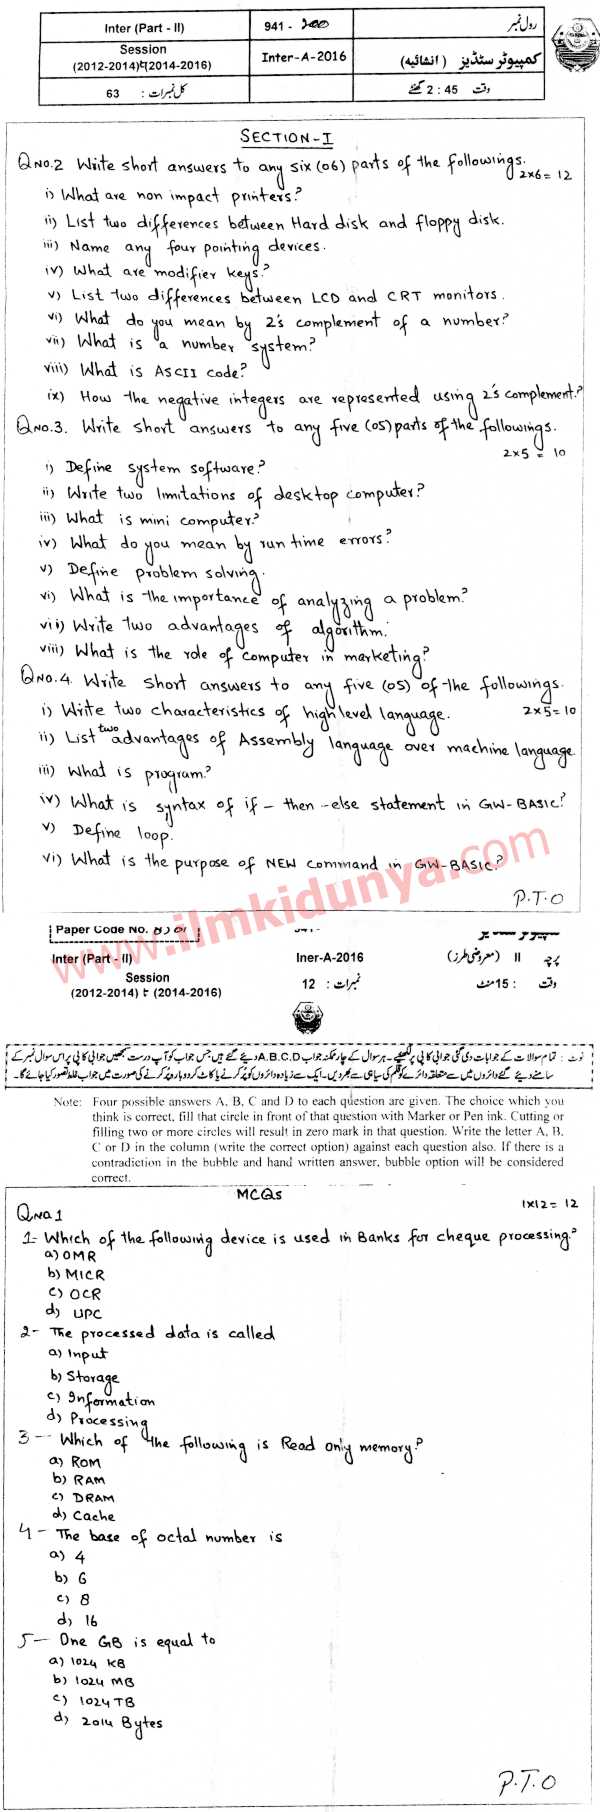 Inter (Part - II)
941 - 200
رول نمبر
Session
(2012-2014) تا (2014-2016)
Inter-A-2016
کمپیوٹر سٹڈیز (انشائیہ)
کل نمبرات : 63
وقت 2 : 45 گھنٹے
SECTION-I
Q NO.2 Write short answers to any six (06) parts of the followings.
2x6= 12
i) What are non impact printers?
ii) List two differences between Hard disk and floppy disk.
iii) Name any four pointing devices.
iv) What are modifier keys?
v) List two differences between LCD and CRT monitors.
vi) What do you mean by 2's complement of a number?
vii) What is a number system?
viii) What is ASCII code?
ix) How the negative integers are represented using 2's complement?
Q NO.3. Write short answers to any five (05) parts of the followings.
2x5 = 10
i) Define system software?
ii) Write two limitations of desktop computer?
iii) What is mini computer?
iv) What do you mean by run time errors?
v) Define problem solving.
vi) What is the importance of analyzing a problem?
vii) Write two advantages of algorithm.
viii) What is the role of computer in marketing?
Q NO.4. Write short answers to any five (05) of the followings.
2x5=10
i) Write two characteristics of high level language.
ii) List two advantages of Assembly language over machine language
iii) What is program?
iv) What is syntax of if - then - else statement in GW-BASIC?
v) Define loop.
vi) What is the purpose of NEW command in GW-BASIC?
P.T.O
www.ilmkidunya.com
Paper Code No.
Inter (Part - II)
Iner-A-2016
پرچہ II (معروضی طرز)
Session
(2012-2014) تا (2014-2016)
نمبرات : 12
وقت : 15 منٹ
نوٹ : تمام سوالات کے جوابات دی گئی جوابی کاپی پر لکھیے۔ ہر سوال کے چار ممکنہ جواب A,B,C,D دیئے گئے ہیں جس جواب کو آپ درست سمجھیں جوابی کاپی پر اس سوال نمبر کے
سامنے دیئے گئے دائروں میں سے متعلقہ دائرے کو قلم کی سیاہی سے بھر دیں۔ ایک سے زیادہ دائروں کو پُر کرنے یا کاٹ کر دوبارہ پُر کرنے کی صورت میں جواب غلط تصور کیا جائے گا۔
Note: Four possible answers A, B, C and D to each question are given. The choice which you
think is correct, fill that circle in front of that question with Marker or Pen ink. Cutting or
filling two or more circles will result in zero mark in that question. Write the letter A, B,
C or D in the column (write the correct option) against each question also. If there is a
contradiction in the bubble and hand written answer, bubble option will be considered
correct.
MCQs
Q NO.1
1x12= 12
1- Which of the following device is used in Banks for cheque processing?
a) OMR
b) MICR
c) OCR
d) UPC
2- The processed data is called
a) Input
b) Storage
c) Information
d) Processing
3- Which of the following is Read only memory?
a) ROM
b) RAM
c) DRAM
d) Cache
4- The base of octal number is
a) 4
b) 6
c) 8
d) 16
5- One GB is equal to
a) 1024 KB
b) 1024 MB
c) 1024 TB
d) 2014 Bytes
P.T.O